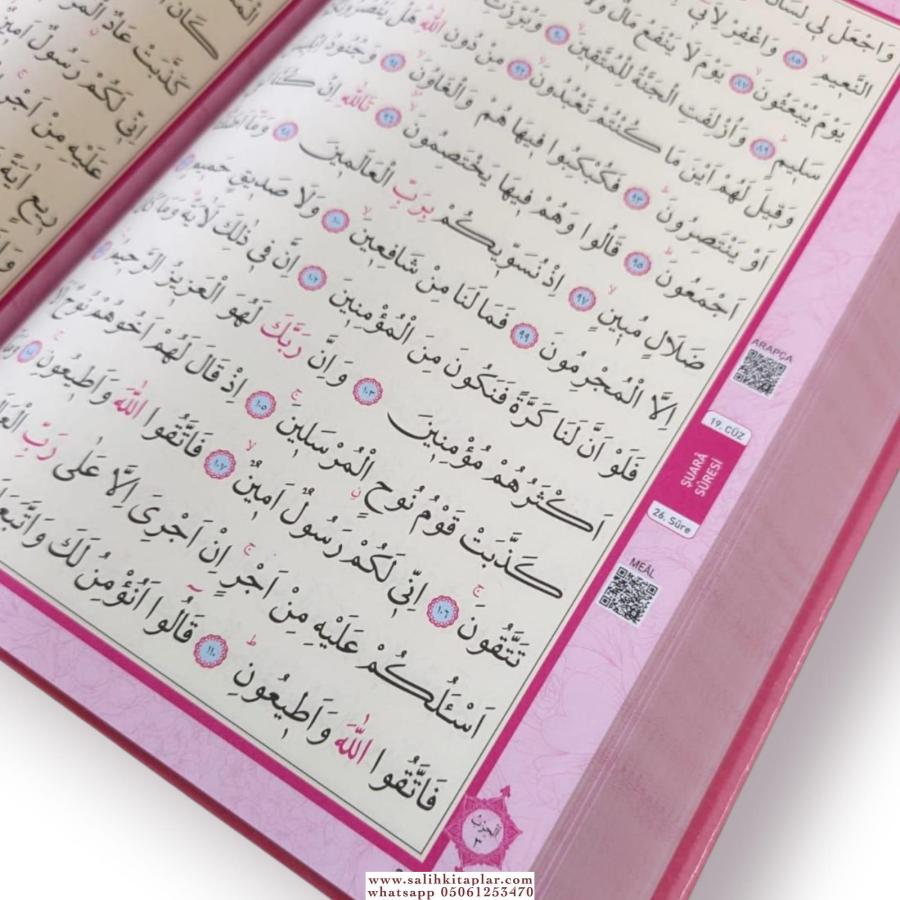 وَاجْعَلْ لِي لِسَانَ
النَّعِيمِ ٨٥ وَاغْفِرْ لِاَبِي
يَوْمَ يُبْعَثُونَ ٨٧ يَوْمَ لَا يَنْفَعُ مَالٌ وَلَا
سَلِيمٍ ٨٩ وَاُزْلِفَتِ الْجَنَّةُ لِلْمُتَّقِينَ ٩٠ وَبُرِّزَتِ
وَقِيلَ لَهُمْ اَيْنَ مَا كُنْتُمْ تَعْبُدُونَ ٩٢ مِنْ دُونِ اللّٰهِ هَلْ
اَوْ يَنْتَصِرُونَ ٩٣ فَكُبْكِبُوا فِيهَا هُمْ وَالْغَاوُنَ ٩٤ وَجُنُودُ
اَجْمَعُونَ ٩٥ قَالُوا وَهُمْ فِيهَا يَخْتَصِمُونَ ٩٦ تَاللّٰهِ اِنْ
ضَلَالٍ مُبِينٍ ٩٧ اِذْ نُسَوِّيكُمْ بِرَبِّ الْعَالَمِينَ ٩٨ وَمَا
اِلَّا الْمُجْرِمُونَ ٩٩ فَمَا لَنَا مِنْ شَافِعِينَ ١٠٠ وَلَا صَدِيقٍ حَمِيمٍ
فَلَوْ اَنَّ لَنَا كَرَّةً فَنَكُونَ مِنَ الْمُؤْمِنِينَ ١٠٢ اِنَّ فِي ذٰلِكَ لَاٰيَةً وَمَا كَانَ
اَكْثَرُهُمْ مُؤْمِنِينَ ١٠٣ وَاِنَّ رَبَّكَ لَهُوَ الْعَزِيزُ الرَّحِيمُ
كَذَّبَتْ قَوْمُ نُوحٍ الْمُرْسَلِينَ ١٠٥ اِذْ قَالَ لَهُمْ اَخُوهُمْ نُوحٌ
تَتَّقُونَ ١٠٦ اِنِّي لَكُمْ رَسُولٌ اَمِينٌ ١٠٧ فَاتَّقُوا اللّٰهَ وَاَطِيعُونِ
اَسْـَٔلُكُمْ عَلَيْهِ مِنْ اَجْرٍ اِنْ اَجْرِيَ اِلَّا عَلٰى رَبِّ
فَاتَّقُوا اللّٰهَ وَاَطِيعُونِ ١١٠ قَالُوا اَنُؤْمِنُ لَكَ
كَانَ
كَذَّبَتْ عَادٌ
اِنِّي لَكُمْ رَسُولٌ
عَلَيْهِ مِنْ اَجْرٍ
رِيعٍ اٰيَةً
ARAPÇA
19. CÜZ
ŞUARÂ
SÛRESİ
26. Sûre
MEÂL
الحزب
٣
www.salihkitaplar.com
whatsapp 05061253470